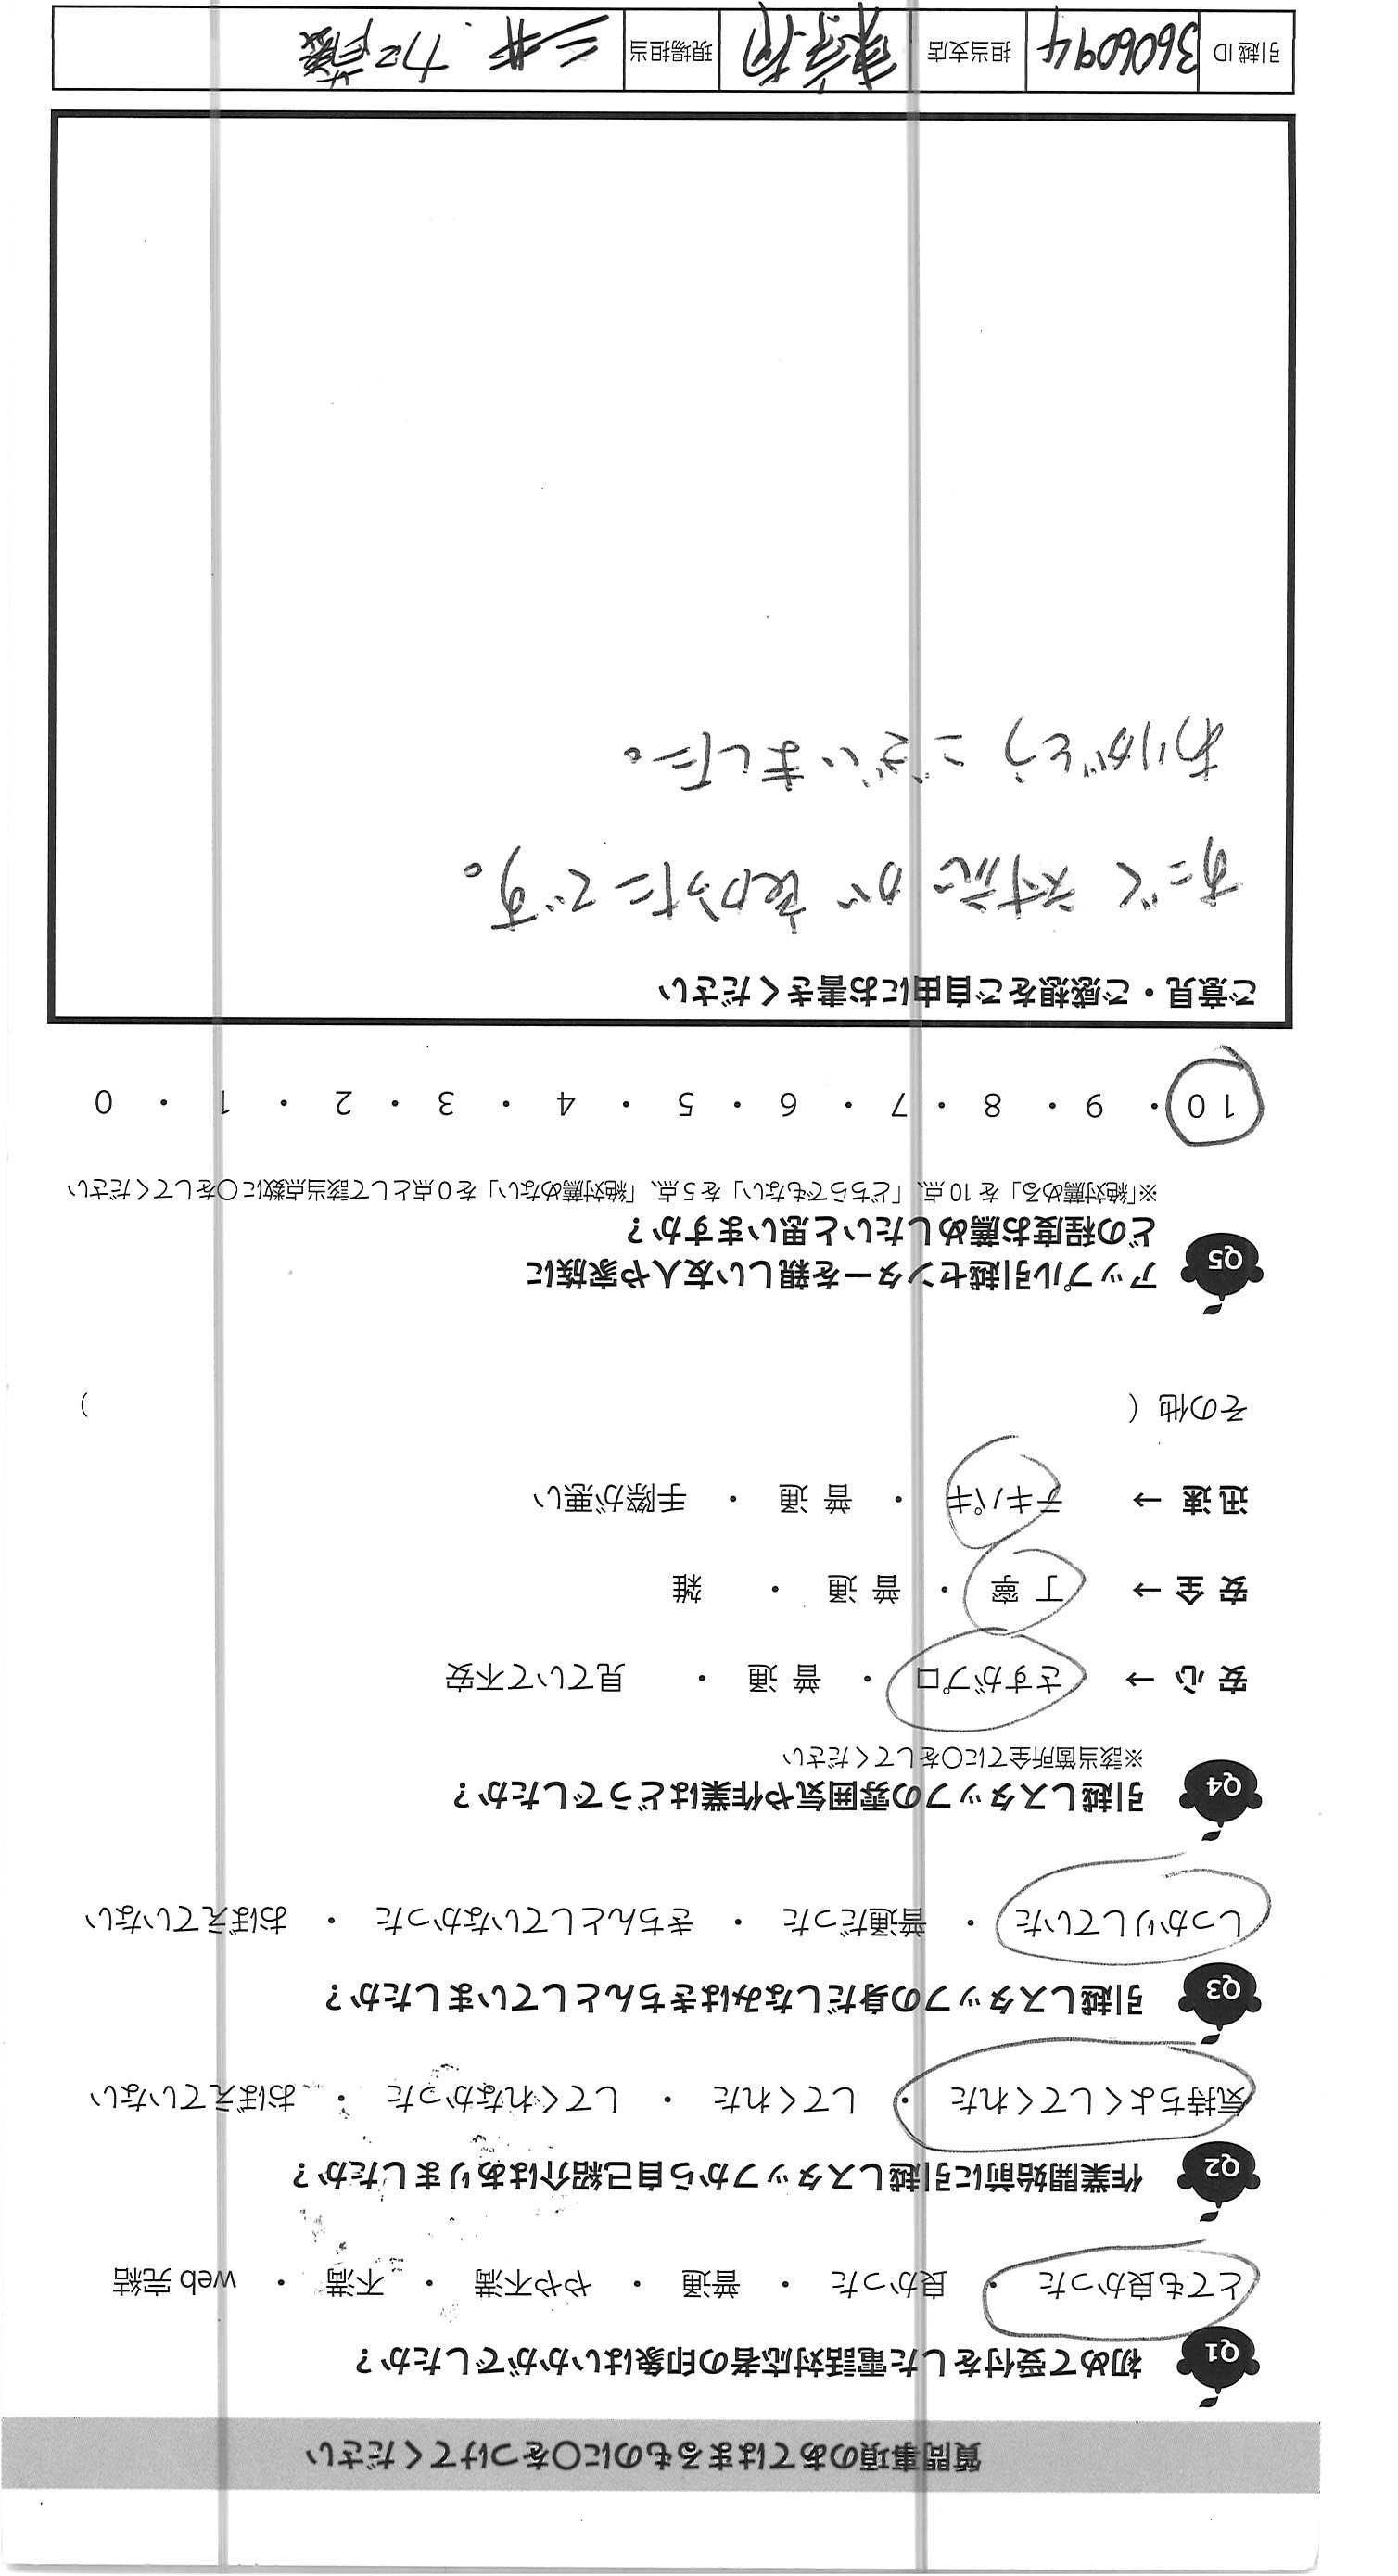 質問事項のあてはまるものに〇をつけてください
Q1 初めて受付をした電話対応者の印象はいかがでしたか？
とても良かった ・ 良かった ・ 普通 ・ やや不満 ・ 不満 ・ web 完結
Q2 作業開始前に引越しスタッフから自己紹介はありましたか？
気持ちよくしてくれた ・ してくれた ・ してくれなかった ・ おぼえていない
Q3 引越しスタッフの身だしなみはきちんとしていましたか？
しっかりしていた ・ 普通だった ・ きちんとしていなかった ・ おぼえていない
Q4 引越しスタッフの雰囲気や作業はどうでしたか？
※該当箇所全てに〇をしてください
安 心 → さすがプロ ・ 普 通 ・ 見ていて不安
安 全 → 丁 寧 ・ 普 通 ・ 雑
迅 速 → テキパキ ・ 普 通 ・ 手際が悪い
その他（ ）
Q5 アップル引越センターを親しい友人や家族に
どの程度お薦めしたいと思いますか？
※「絶対薦める」を 10 点、「どちらでもない」を 5 点、「絶対薦めない」を 0 点として該当点数に〇をしてください
10 ・ 9 ・ 8 ・ 7 ・ 6 ・ 5 ・ 4 ・ 3 ・ 2 ・ 1 ・ 0
ご意見・ご感想をご自由にお書きください
すごく 対応 が 良かったです。
ありがとう ございました。
引越 ID 3606094 担当支店 現場担当 三井. 加藤